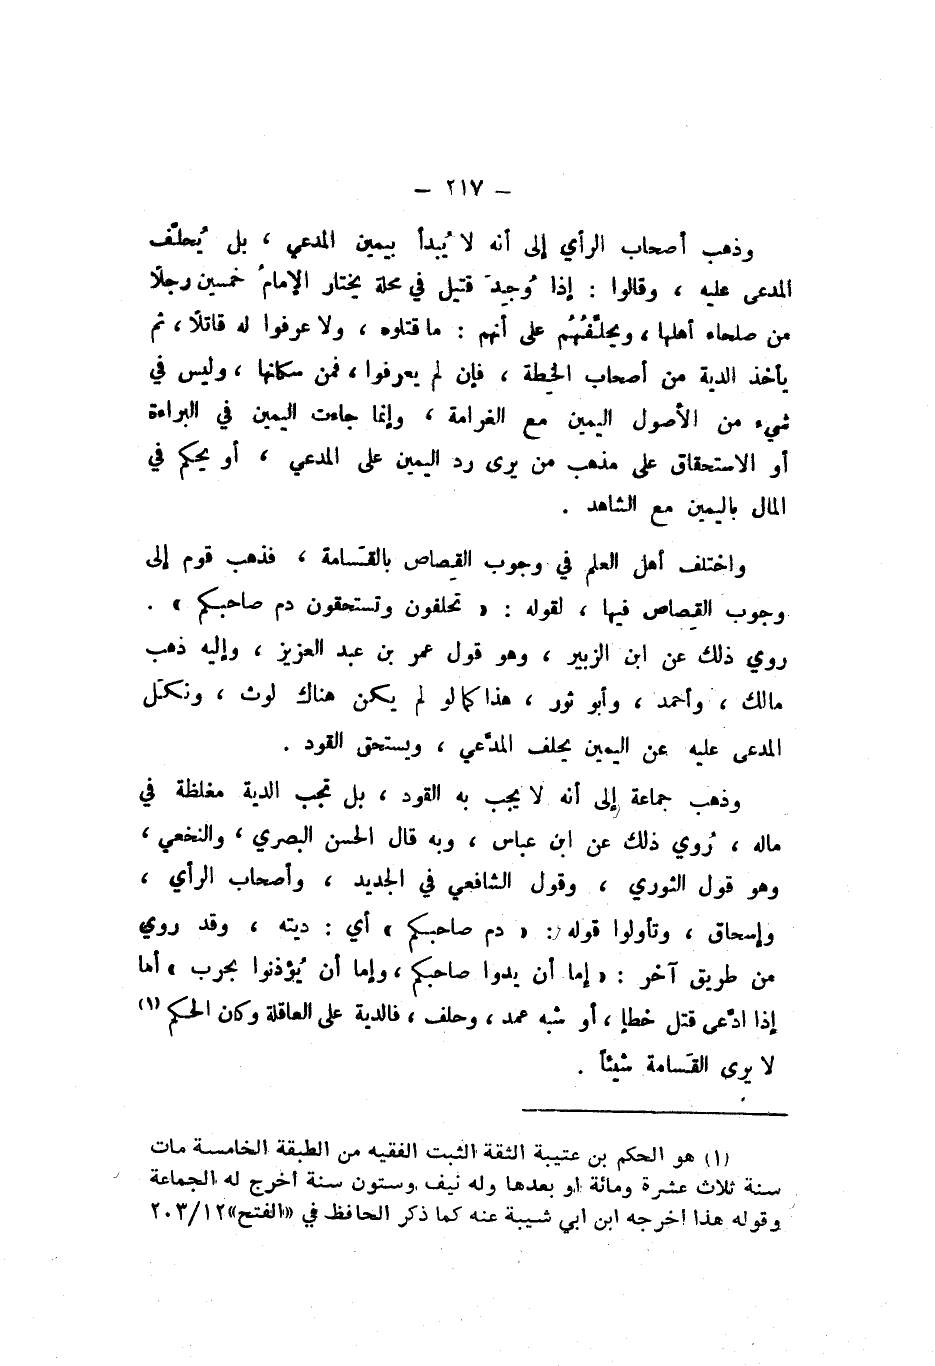 – ٢١٧ –
وذهب أصحاب الرأي إلى أنه لا يُبدأ بيمين المدعي ، بل يُحلَّف
المدعى عليه ، وقالوا : إذا وُجِيدَ قتيل في محلة يختار الإمامُ خمسين رجلًا
من صلحاء أهلها ، ويحلَّفُهُم على أنهم : ما قتلوه ، ولا عرفوا له قاتلًا ، ثم
يأخذ الدية من أصحاب الخِطة ، فإن لم يعرفوا ، فمن سكانها ، وليس في
شيء من الأصول اليمين مع الغرامة ، وإنما جاءت اليمين في البراءة
أو الاستحقاق على مذهب من يرى رد اليمين على المدعي ، أو يحكم في
المال باليمين مع الشاهد .
واختلف أهل العلم في وجوب القِصاص بالقَسامة ، فذهب قوم إلى
وجوب القِصاص فيها ، لقوله : « تحلفون وتستحقون دم صاحبكم » .
روي ذلك عن ابن الزبير ، وهو قول عمر بن عبد العزيز ، وإليه ذهب
مالك ، وأحمد ، وأبو ثور ، هذا كما لو لم يكن هناك لوث ، ونكَل
المدعى عليه عن اليمين يحلف المدَّعي ، ويستحق القود .
وذهب جماعة إلى أنه لا يجب به القود ، بل تجب الدية مغلظة في
ماله ، رُوي ذلك عن ابن عباس ، وبه قال الحسن البصري ، والنخعي ،
وهو قول الثوري ، وقول الشافعي في الجديد ، وأصحاب الرأي ،
وإسحاق ، وتأولوا قوله : « دم صاحبكم » أي : ديته ، وقد روي
من طريق آخر : « إما أن يدوا صاحبكم ، وإما أن يُؤذنوا بحرب » أما
إذا ادَّعى قتل خطإ ، أو شبه عمد ، وحلف ، فالدية على العاقلة وكان الحكم (١)
لا يرى القَسامة شيئاً .
(١) هو الحكم بن عتيبة الثقة الثبت الفقيه من الطبقة الخامسة مات
سنة ثلاث عشرة ومائة او بعدها وله نيف وستون سنة اخرج له الجماعة
وقوله هذا اخرجه ابن ابي شيبة عنه كما ذكر الحافظ في «الفتح» ٢٠٣/١٢